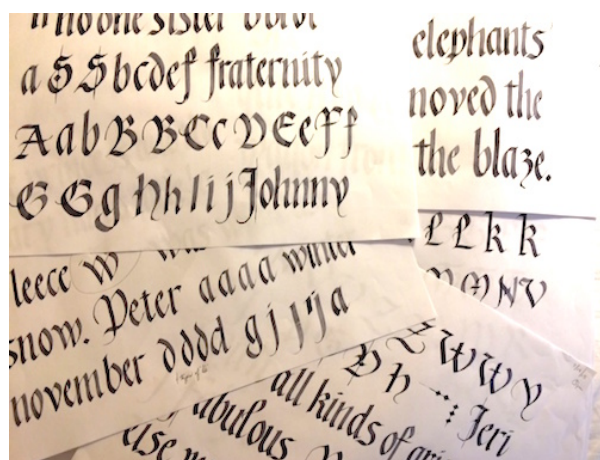 no one sister
a S S bcdef fraternity
A a b B B C c D E e F f
G G g h h I i j Johnny
elephants
moved the
the blaze.
leece W
snow. Peter aaaa winter
november dddd g j j j a
L L k k
Z W W y
all kinds of
Jeri
abulous
else